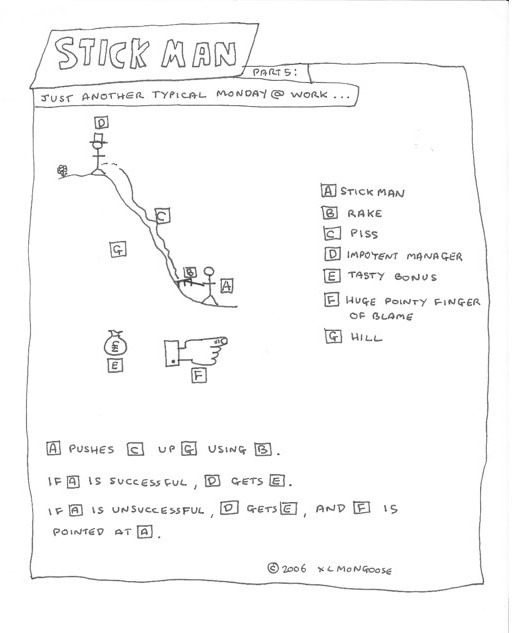 STICK MAN
PART 5:
JUST ANOTHER TYPICAL MONDAY @ WORK ...
D
C
G
B
A
£
E
F
A STICKMAN
B RAKE
C PISS
D IMPOTENT MANAGER
E TASTY BONUS
F HUGE POINTY FINGER
OF BLAME
G HILL
A PUSHES C UP G USING B.
IF A IS SUCCESSFUL, D GETS E.
IF A IS UNSUCCESSFUL, D GETS E, AND F IS
POINTED AT A.
© 2006 XLMONGOOSE